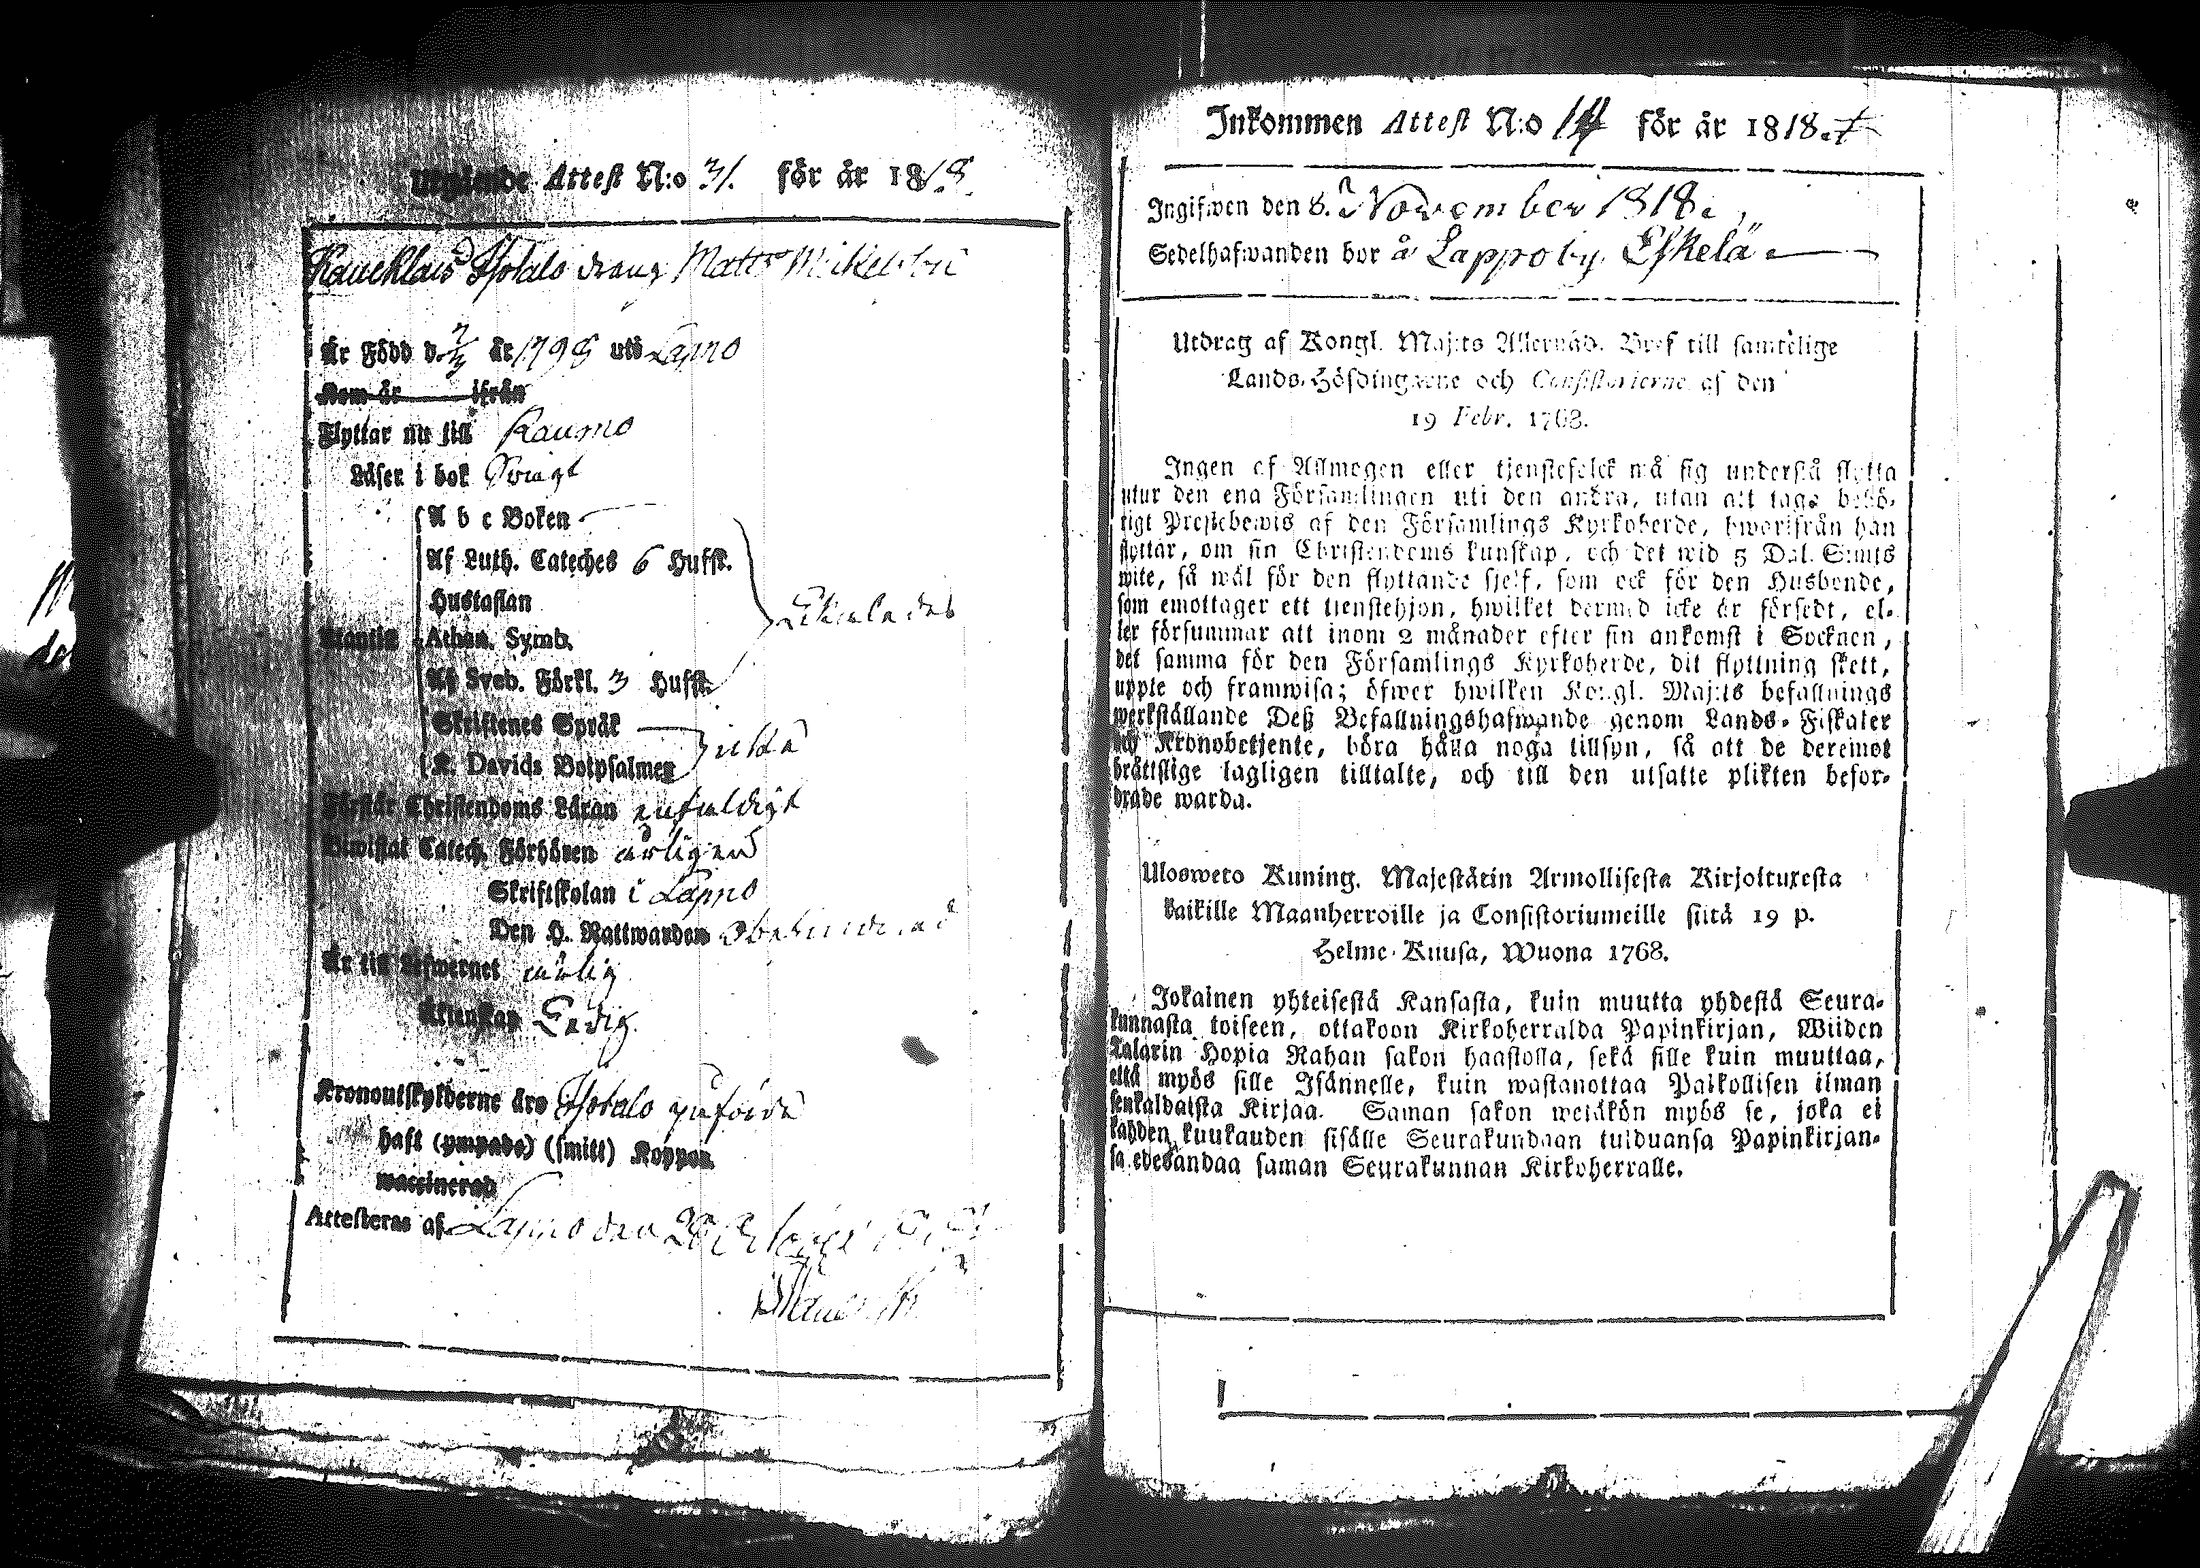 Utgående Attest N:o 31. för år 1818.
Kaucklais Isotalo dräng Matts Mikelsson
Är Född d. 7/3 år 1798 uti Lapno
Kom år ifrån
Flyttar nu till Raumo
Läser i bok Swagt
A b c Boken
Af Luth. Cateches 6 Hufst.
Hustaflan
Utantill Athan. Symb.
Af Sveb. Förkl. 3 Hufst.
Skriftenes Språk
K. Davids Botpsalmer
icke
Förstår Christendoms Läran enfaldigt
Biwistat Catech. Förhören årligen
Skriftskolan i Lapno
Den H. Nattwarden
Är till Lefwernet ärlig
Äktenskap Ledig.
Kronoutskylderne äro Isotalo påförde
haft (ympade) (smitt) Koppor
waccinerad
Attesteras af Lapno den
Inkommen Attest N:o 14 för år 1818.
Ingifwen den 8. November 1818.
Sedelhafwanden bor å Lappo by. Eskelä
Utdrag af Kongl. Maj:ts Allernåd. Bref till samtelige
Lands-Höfdingarne och Consistorierne af den
19 Febr. 1768.
Ingen af Allmogen eller tjenstefolck må sig understå flytta
utur den ena Församlingen uti den andra, utan att taga behö-
rigt Prestebewis af den Församlings Kyrkoherde, hworifrån han
flyttar, om sin Christendoms kunskap, och det wid 5 Dal. S:mts
wite, så wäl för den flyttande sjelf, som ock för den Husbonde,
som emottager ett tienstehjon, hwilket dermed icke är försedt, el-
ler försummar att inom 2 månader efter sin ankomst i Socknen,
det samma för den Församlings Kyrkoherde, dit flyttning skett,
uppte och framwisa; öfwer hwilken Kongl. Maj:ts befallnings
werkställande Deß Befallningshafwande genom Lands-Fiskaler
och Kronobetjente, böra hålla noga tillsyn, så att de deremot
bråttslige lagligen tilltalte, och till den utsatte plikten befor-
drade warda.
Ulosweto Kuning. Majestätin Armollisesta Kirjoituxesta
kaikille Maanherroille ja Consistoriumeille siitä 19 p.
Helme-Kuusa, Wuona 1768.
Jokainen yhteisestä Kansasta, kuin muutta yhdestä Seura-
kunnasta toiseen, ottakoon Kirkoherralda Papinkirjan, Wiiden
Talarin Hopia Rahan sakon haastolla, sekä sille kuin muuttaa,
että myös sille Isännelle, kuin wastanottaa Palkollisen ilman
senkaldaista Kirjaa. Saman sakon wetäkön myös se, joka ei
kahden kuukauden sisälle Seurakundaan tulduansa Papinkirjan-
sa edesandaa saman Seurakunnan Kirkoherralle.